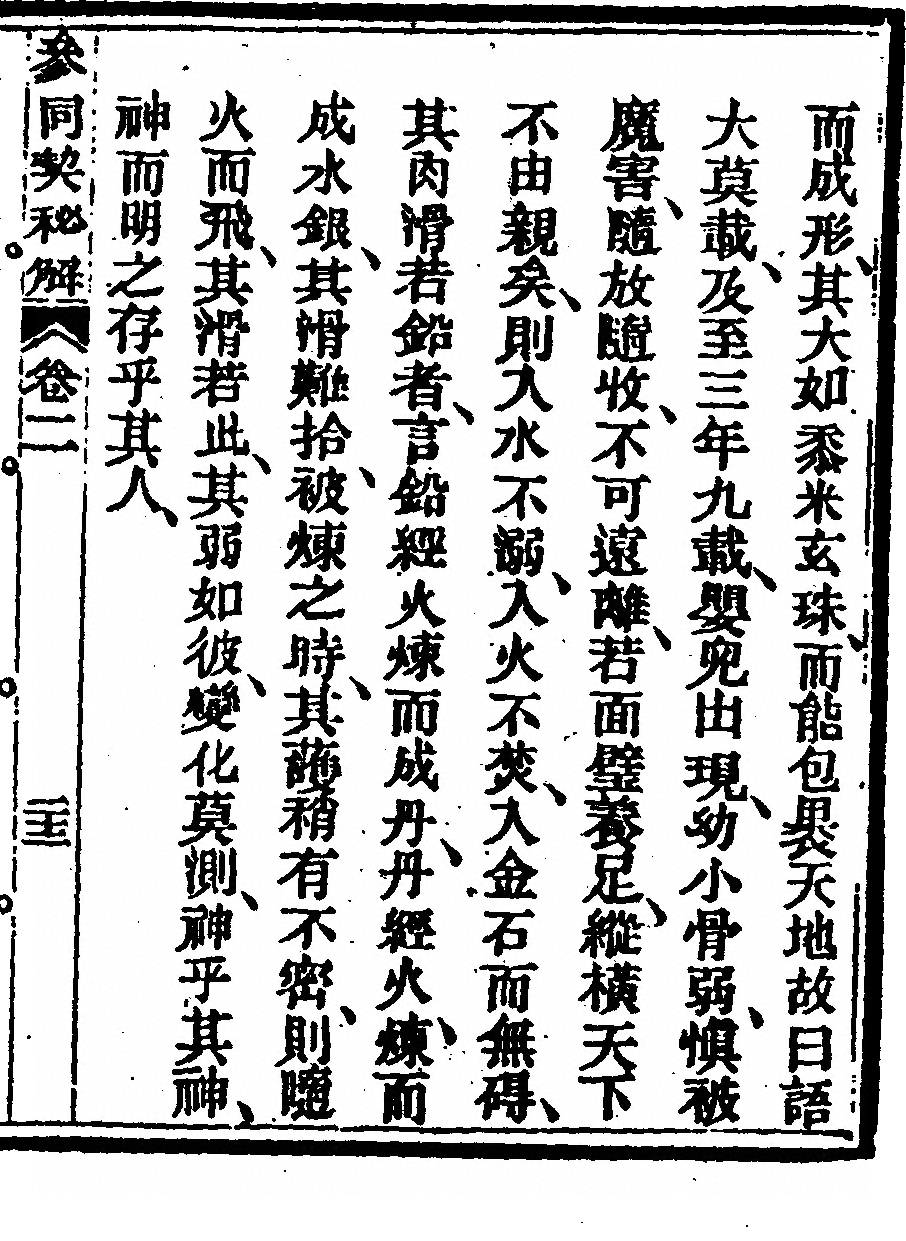 而成形、其大如黍米玄珠、而能包裹天地故曰語
大莫載、及至三年九載、嬰兒出現、幼小骨弱、慎被
魔害、隨放隨收、不可遠離、若面壁養足、縱橫天下
不由親矣、則入水不溺、入火不焚、入金石而無碍、
其肉滑若鉛者、言鉛經火煉而成丹、丹經火煉、而
成水銀、其滑難拾、被煉之時、其護稍有不密、則隨
火而飛、其滑若此、其弱如彼、變化莫測、神乎其神、
神而明之存乎其人、
參同契秘解 卷二 三十五